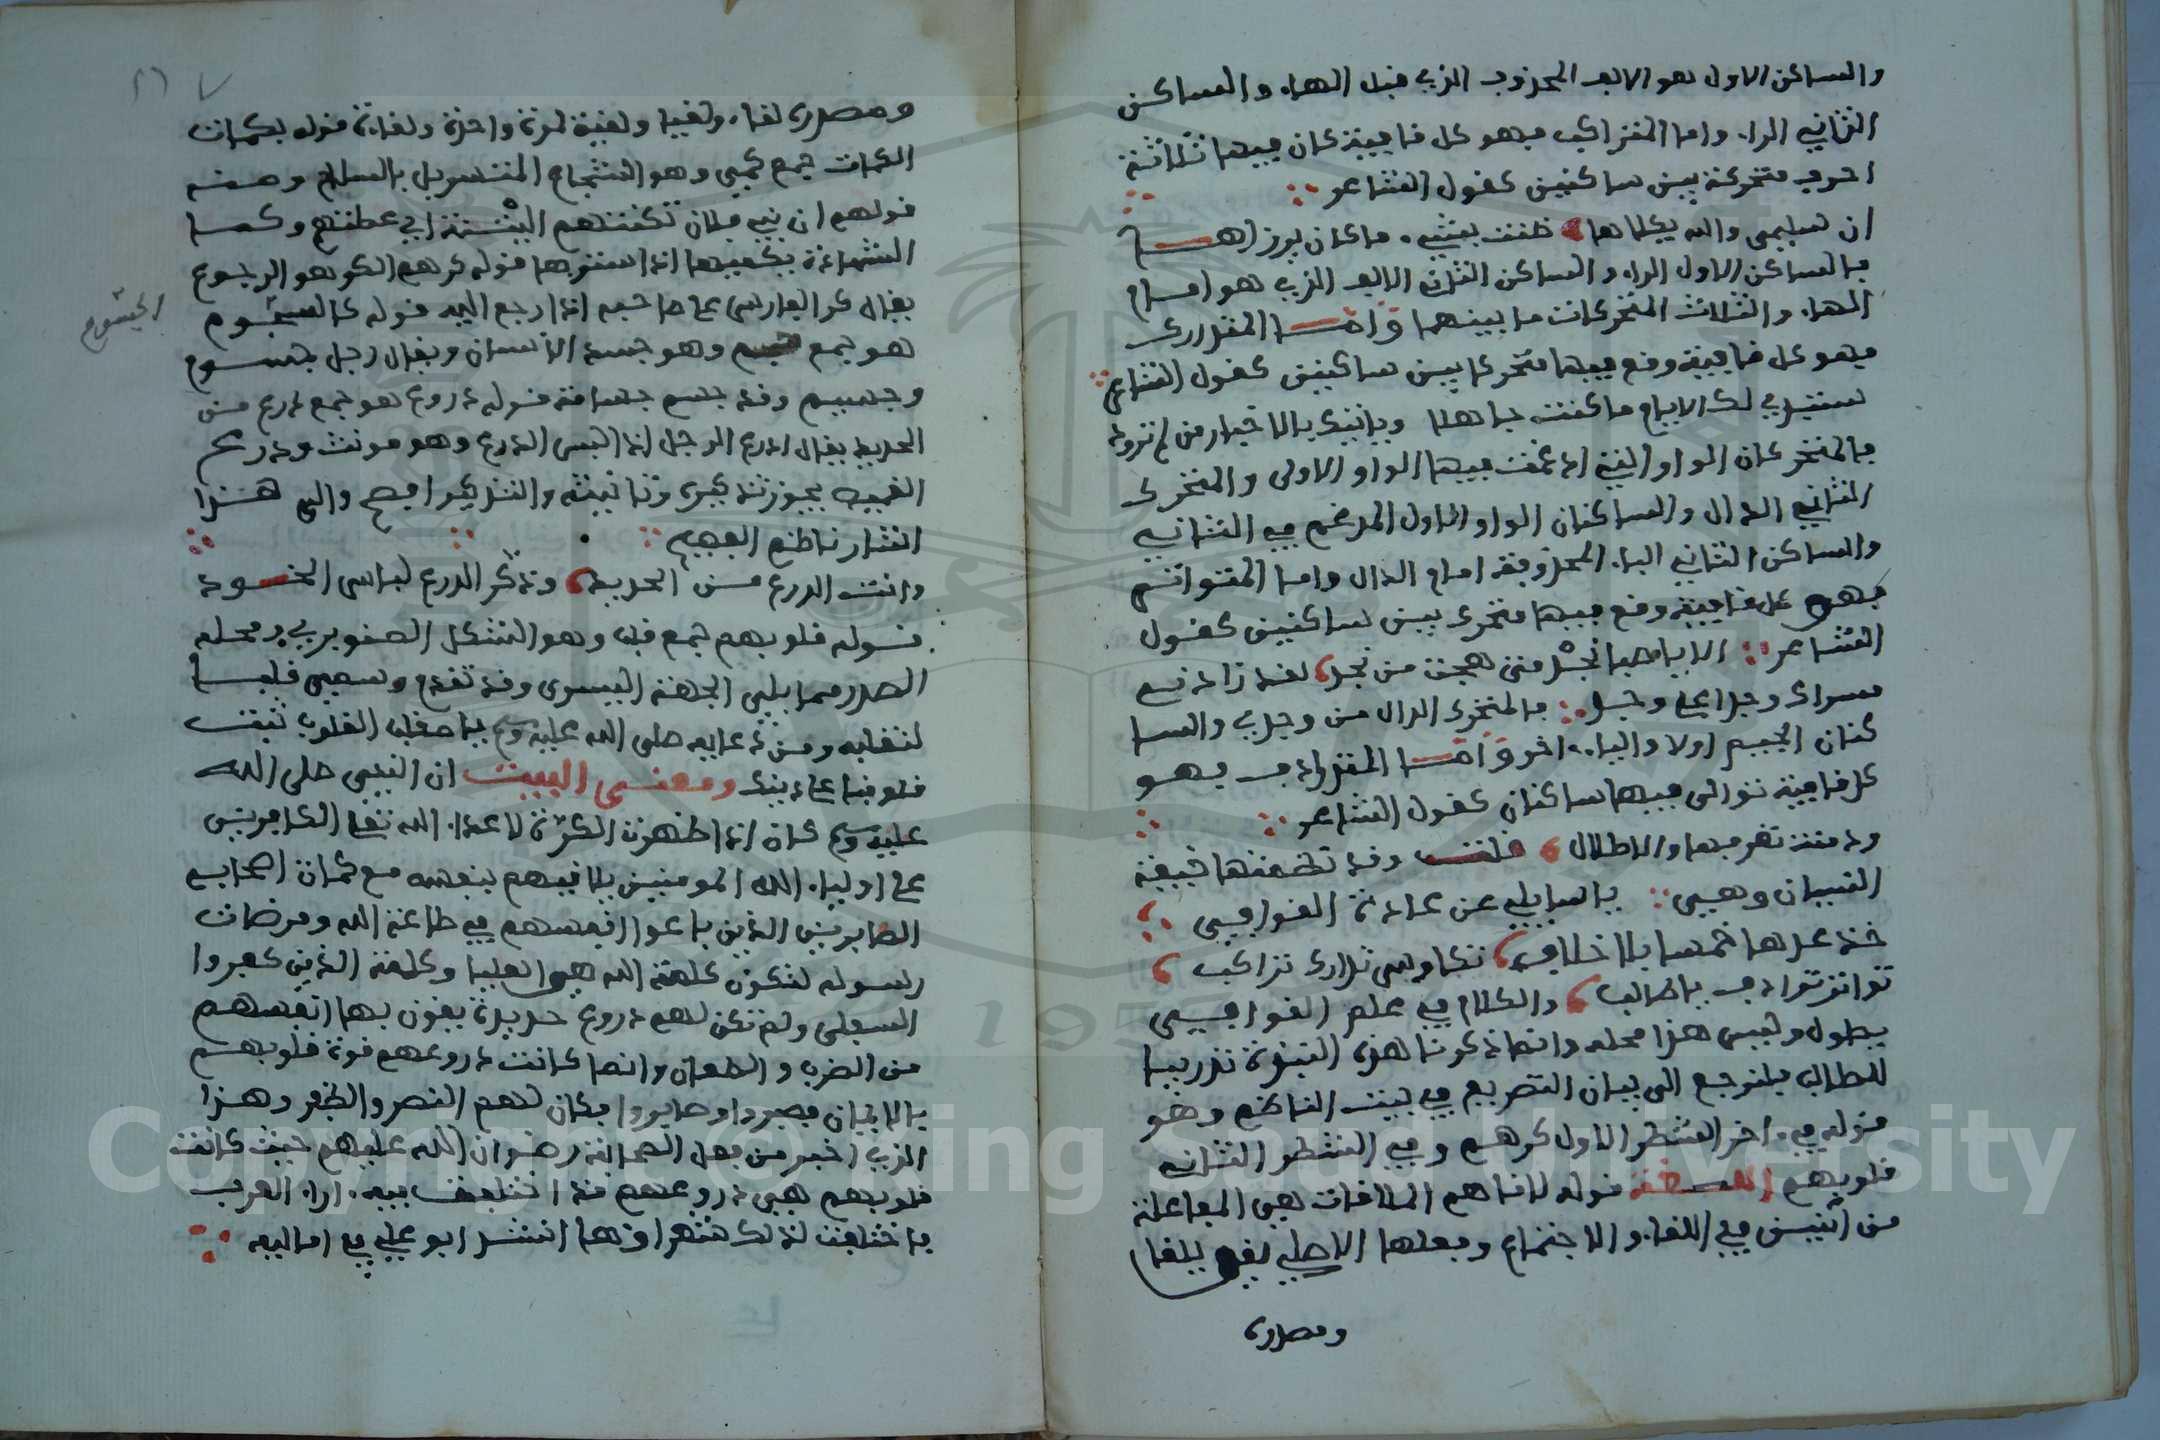 والساكن الاول هو الالف المحذوف الذي قبل الهاء والساكن
الثاني الراء واما المتراكب فهو كل قافية كان فيها ثلاثة
احرف متحركة بين ساكنين كقول الشاعر
ان سليمى والله يكلاها ضنت بشيء ما كان يرزاها
فالساكن الاول الراء والساكن الثاني الالف الذي هو امام
الهاء والثلاث المتحركات ما بينهما واما المتدارك
فهو كل قافية وقع فيها متحركا بين ساكنين كقول الشاعر
ستبدي لك الايام ما كنت جاهلا وياتيك بالاخبار من لم تزود
فالمتحركان الواو التي ادغمت فيها الواو الاولى والمتحرك
الثاني الدال والساكنان الواو الاول المدغم في الثانية
والساكن الثاني الياء المحذوفة امام الدال واما المتواتر
فهو كل قافية وقع فيها متحرك بين ساكنين كقول
الشاعر الا يا صبا نجد متى هجت من نجد لقد زادني
مسراك وجدا على وجد فالمتحرك الدال من وجدي والسا
كنان الجيم اولا والياء اخر واما المترادف فهو
كل قافية توالى فيها ساكنان كقول الشاعر
ودمنة نعرفها والاطلال قلت وقد نظمتها فبيتة
التبيان وهي يا سايلي عن عادة القوافي
خذ عدها خمسا بلا خلاف تكاوس تدارك تراكب
تواتر ترادف يا طالب والكلام في علم القوافي
يطول وليس هذا محله وانما ذكرنا هذه النبذة تدريبا
للطالب فلنرجع الى بيان التصريع في بيت الناظم وهو
قوله في اخر الشطر الاول كرهم وفي الشطر الثاني
قلوبهم اللغة قوله لاقاهم الملاقات هي المفاعلة
من اثنين في اللقاء والاجتماع وفعلها الاصلي لقي يلقا
ومصدره
ومصدره لقاء ولقيا ولقية لمرة واحدة ولقاة قوله بكمات
الكمات جمع كمي وهو الشجاع المتسربل بالسلاح ومنه
قولهم ان بني فلان تكمتهم الفتنة اي غطتهم وكما
الشهادة يكميها اذا سترها قوله كرهم الكر هو الرجوع
يقال كر الفارس على صاحبه اذا رجع اليه قوله كالسجوم
الجشوم
هو جمع جسم وهو جسد الانسان ويقال رجل جسوم
وجسيم وقد جسم جسامة قوله دروع هو جمع درع من
الحديد يقال ادرع الرجل اذا لبس الدرع وهو مونث ودرع
القميص يجوز تذكيره وتانيثه والتذكير افصح والى هذا
اشار ناظم الفصيح
وانث الدرع من الحديد وذكر الدرع لباس الخود
قوله قلوبهم جمع قلب وهو الشكل الصنوبري ومحله
الصدر مما يلي الجهة اليسرى وقد تقدم وسمي قلبا
لتقلبه ومن دعايه صلى الله عليه وسلم يا مقلب القلوب ثبت
قلوبنا على دينك ومعنى البيت ان النبي صلى الله
عليه وسلم كان اذا ظهرت الكرة لاعداء الله تعلى الكافرين
على اولياء الله المومنين يلاقيهم بنفسه مع كمات اصحابه
الصابرين الذين باعوا انفسهم في طاعة الله ومرضات
رسوله لتكون كلمة الله هي العليا وكلمة الذين كفروا
السفلى ولم تكن لهم دروع حديدة يقون بها انفسهم
من الضرب والطعن وانما كانت دروعهم قوة قلوبهم
بالايمان فصبروا وصابروا فكان لهم النصر والظفر وهذا
الذي اخبر من فعل الصحابة رضوان الله عليهم حيث كانت
قلوبهم هي دروعهم قد اختلفت فيه اراء العرب
فاختلفت لذلك شعراوها انشد ابو علي في اماليه